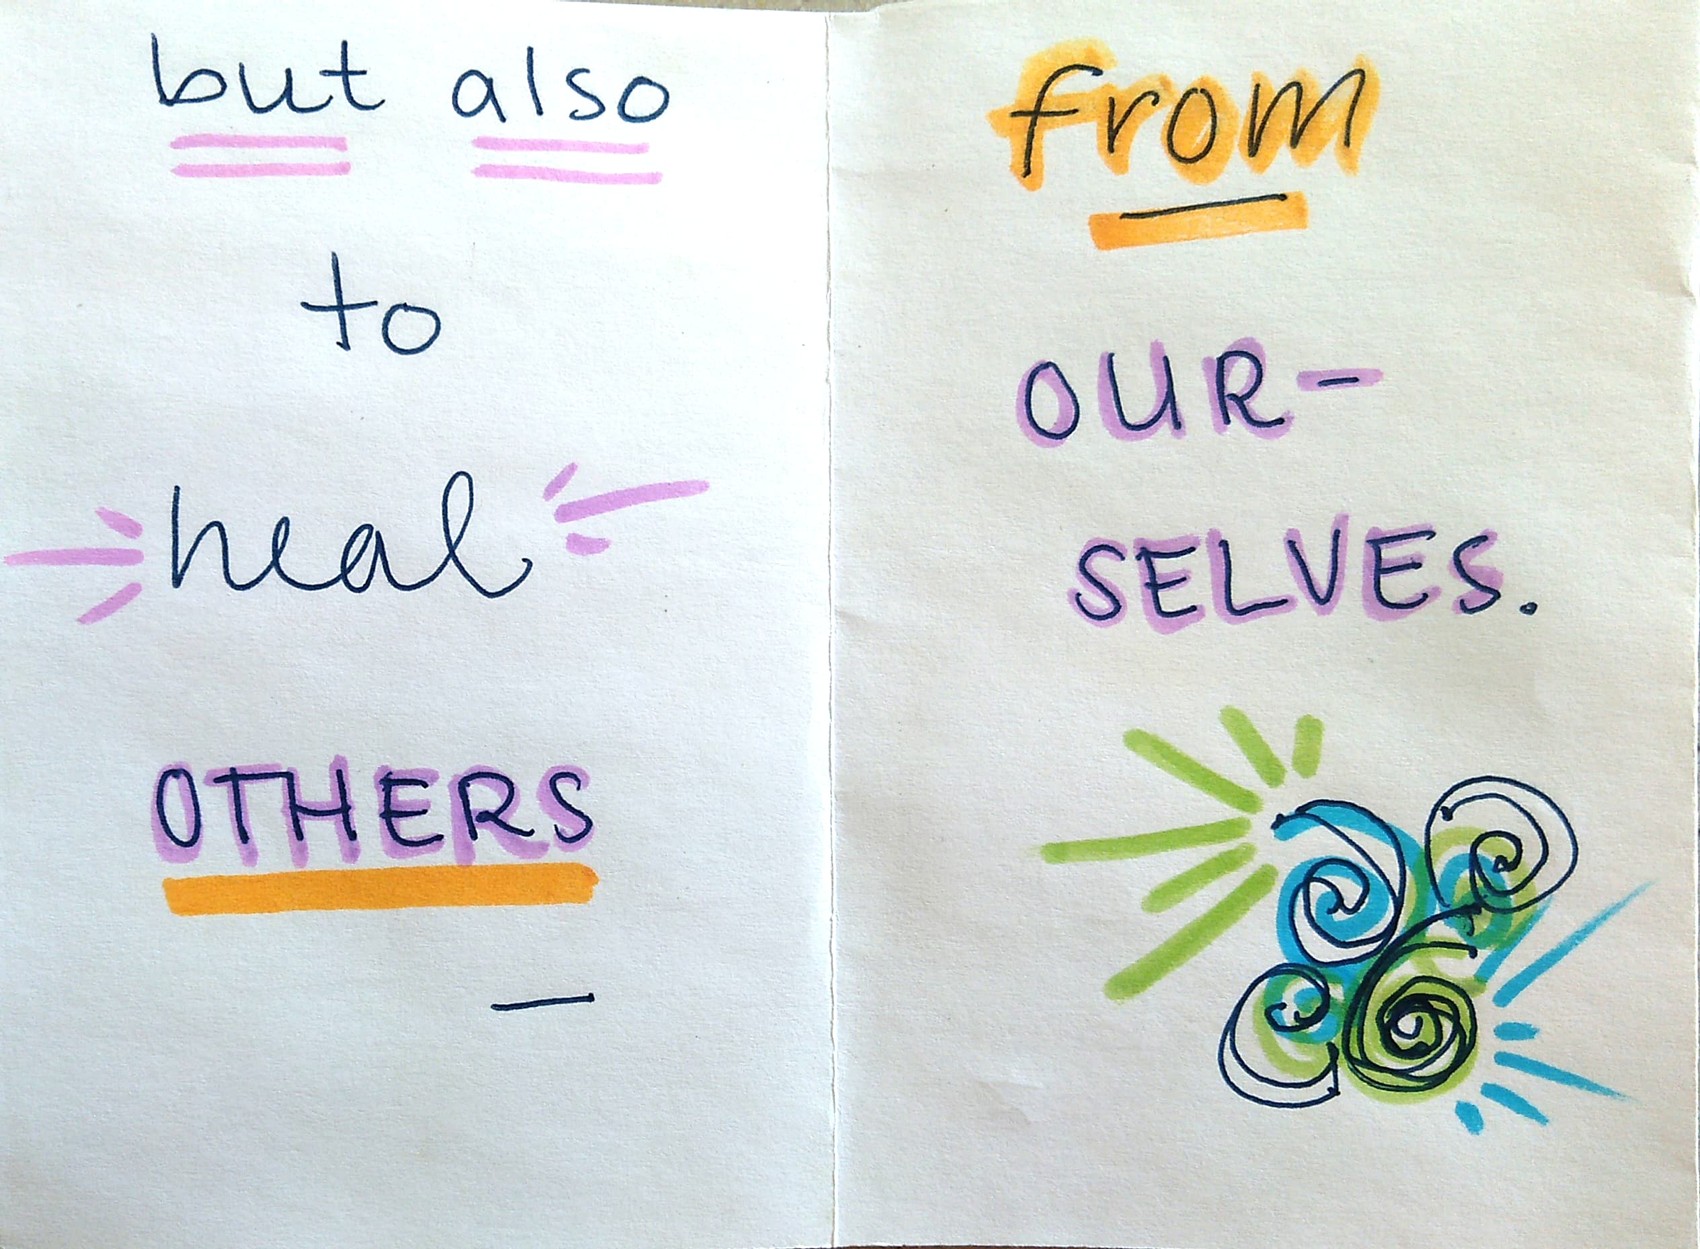 but also
to
heal
OTHERS
—
from
OUR-
SELVES.